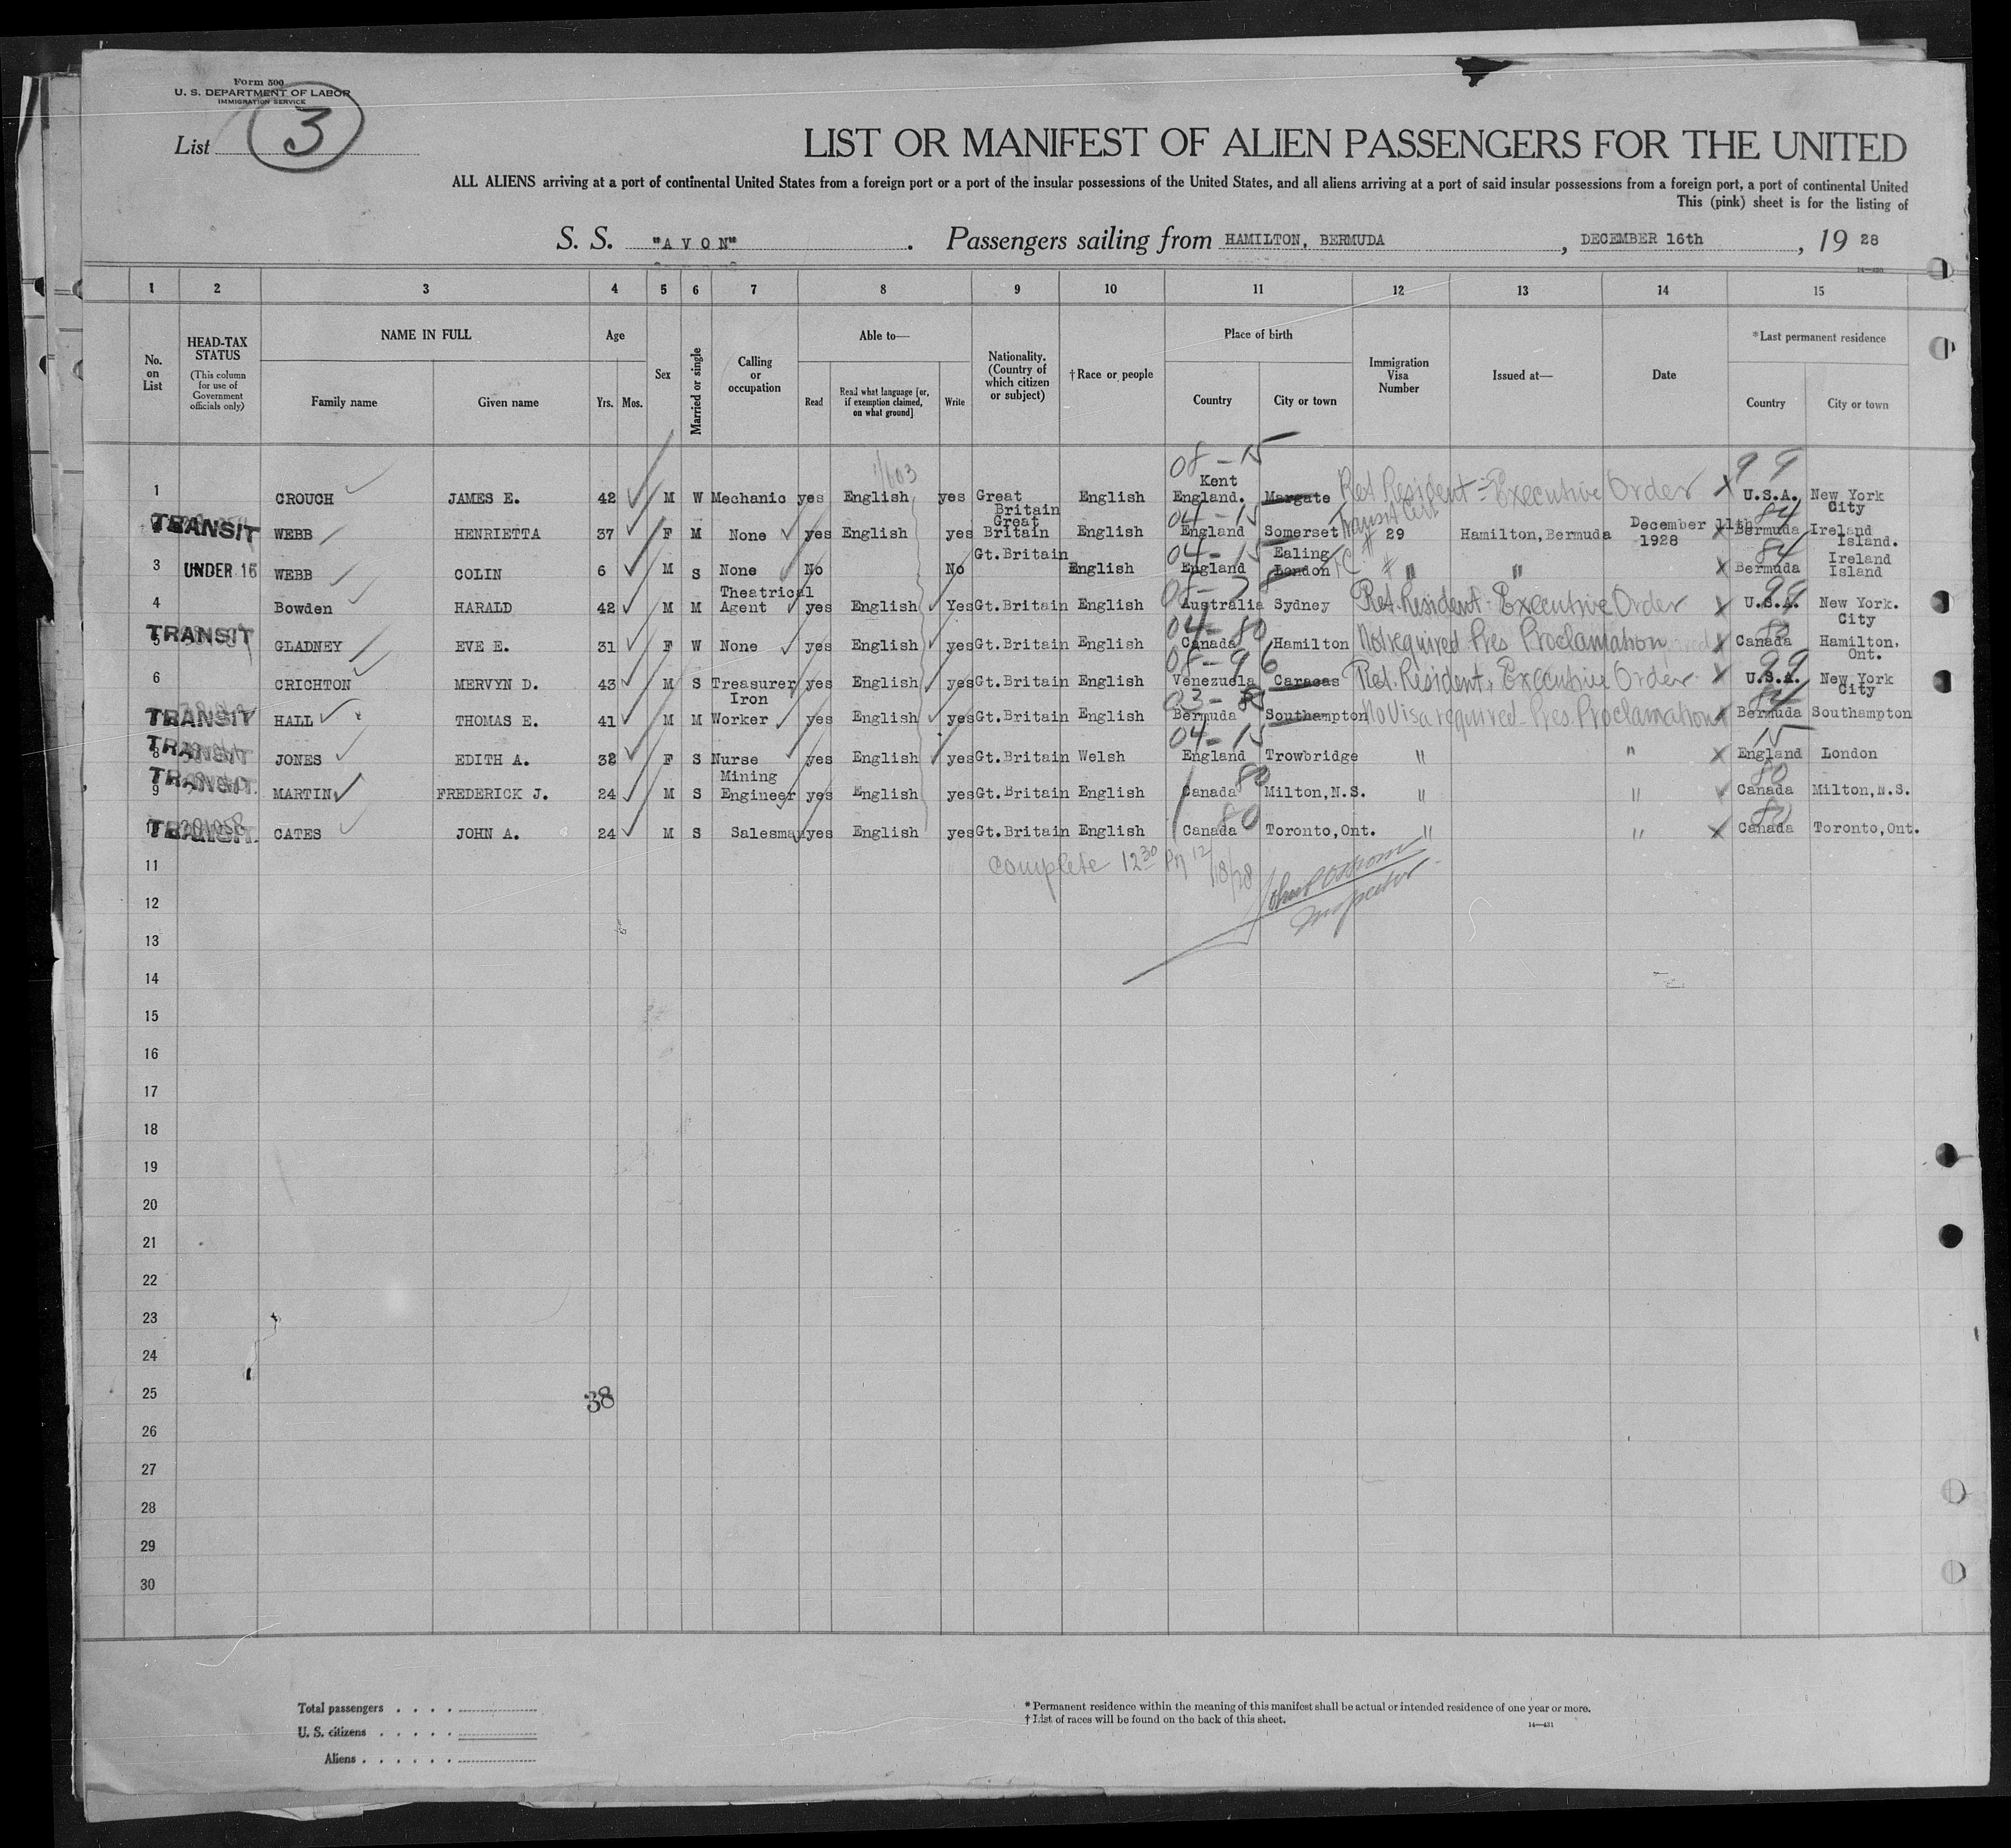 Form 500
U. S. DEPARTMENT OF LABOR
IMMIGRATION SERVICE
List 3
LIST OR MANIFEST OF ALIEN PASSENGERS FOR THE UNITED
ALL ALIENS arriving at a port of continental United States from a foreign port or a port of the insular possessions of the United States, and all aliens arriving at a port of said insular possessions from a foreign port, a port of continental United
This (pink) sheet is for the listing of
S. S. "AVON". Passengers sailing from HAMILTON, BERMUDA, DECEMBER 16th, 19 28
14—430
1 2 3 4 5 6 7 8 9 10 11 12 13 14 15
No. on List
HEAD-TAX STATUS (This column for use of Government officials only)
NAME IN FULL
Family name Given name
Age
Yrs. Mos.
Sex
Married or single
Calling or occupation
Able to—
Read
Read what language [or, if exemption claimed, on what ground]
Write
Nationality. (Country of which citizen or subject)
†Race or people
Place of birth
Country City or town
Immigration Visa Number
Issued at—
Date
*Last permanent residence
Country City or town
1 CROUCH JAMES E. 42 M W Mechanic yes English yes Great Britain English 08-15 Kent England. Margate Ret Resident - Executive Order X 99 U.S.A. New York City
TRANSIT WEBB HENRIETTA 37 F M None yes English yes Great Britain English 04-15 England Somerset Transit Cert # 29 Hamilton, Bermuda December 11th 1928 X 84 Bermuda Ireland Island.
3 UNDER 16 WEBB COLIN 6 M S None No No Gt.Britain English 04-15 England Ealing London # " " X 84 Bermuda Ireland Island
4 Bowden HARALD 42 M M Theatrical Agent yes English Yes Gt.Britain English Australia Sydney Ret. Resident - Executive Order X 99 U.S.A. New York. City
5 TRANSIT GLADNEY EVE E. 31 F W None yes English yes Gt.Britain English 04-80 Canada Hamilton Not required Pres Proclamation X 80 Canada Hamilton, Ont.
6 CRICHTON MERVYN D. 43 M S Treasurer yes English yes Gt.Britain English 08-96 Venezuela Caracas Ret. Resident, Executive Order. X 99 U.S.A. New York City
TRANSIT HALL THOMAS E. 41 M M Iron Worker yes English yes Gt.Britain English 03-84 Bermuda Southampton No Visa required - Pres. Proclamation X 84 Bermuda Southampton
8 TRANSIT JONES EDITH A. 32 F S Nurse yes English yes Gt.Britain Welsh 04-15 England Trowbridge " " X 15 England London
9 TRANSIT MARTIN FREDERICK J. 24 M S Mining Engineer yes English yes Gt.Britain English 80 Canada Milton, N.S. " " 80 Canada Milton, N.S.
TRANSIT CATES JOHN A. 24 M S Salesman yes English yes Gt.Britain English 80 Canada Toronto, Ont. " " X 80 Canada Toronto, Ont.
11 Complete 12 30 PM 12/18/28
Inspector
12
13
14
15
16
17
18
19
20
21
22
23
24
25 38
26
27
28
29
30
Total passengers
U. S. citizens
Aliens
* Permanent residence within the meaning of this manifest shall be actual or intended residence of one year or more.
† List of races will be found on the back of this sheet.
14—431